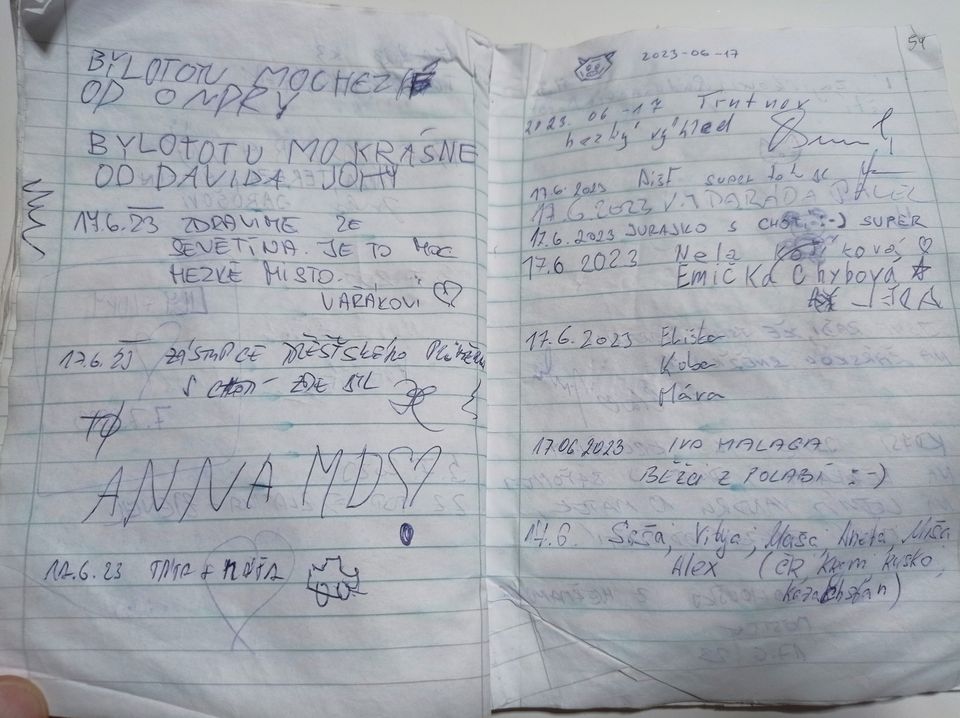 BYLOTOTU MOC HEZKÉ
OD ONDRY
BYLOTOTU MO KRÁSNE
OD DAVIDA JOHY
17.6.23 ZDRAVIME ZE
SEVETÍNA. JE TO MOC
HEZKÉ MISTO.
VAŘÁKOVI ♡
17.6.23 ZÁSTUPCE
ZDE BYL
ANNA MDS
17.6.23 TÁTA + MÁTA
59
2023-06-17
2023-06-17 Trutnov
hezký výhled
17.6.2023 super
17.6.2023 V.T DARÁDA PAVEL
17.6.2023 JURAJKO S :-) SUPER
17.6 2023 Nela ková ♡
Emička Chybová ☆
17.6.2023 Eliška
Kuba
Mára
17.06.2023 IVO MALAGA
BĚŽCI Z POLABÍ :-)
17.6. Saša, Vitja, Maša, Aneta, Miša
Alex (ČR, Krym, Rusko,
Kazachstán)